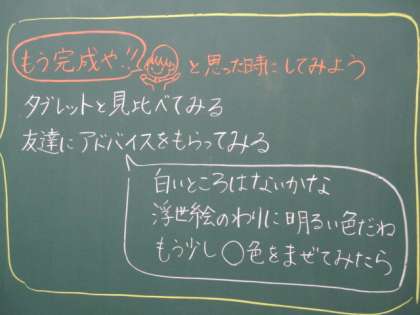 もう完成や!! と思った時にしてみよう
タブレットと見比べてみる
友達にアドバイスをもらってみる
白いところはないかな
浮世絵のわりに明るい色だね
もう少し〇色をまぜてみたら